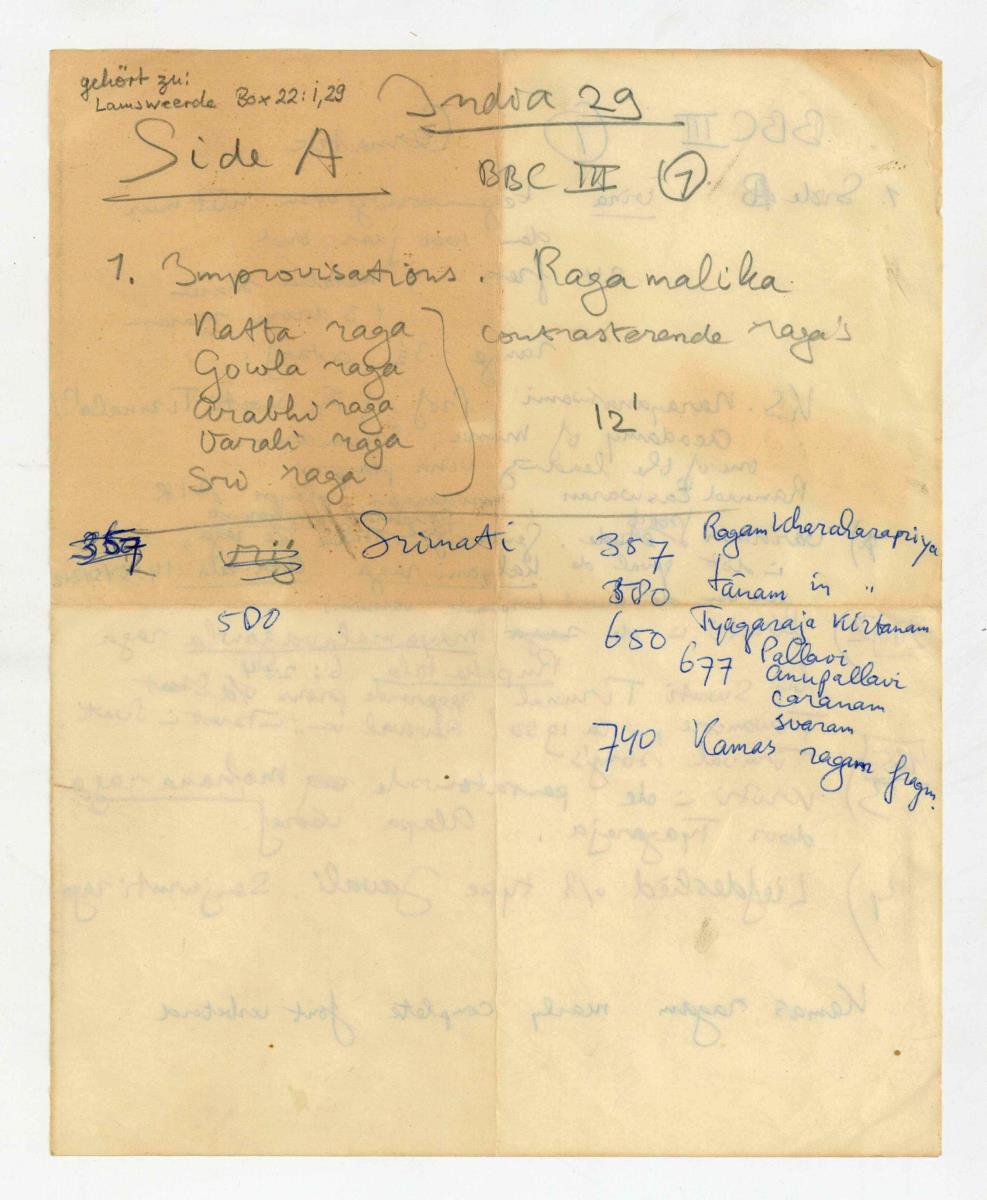 gehört zu:
Lamsweerde Box 22: I, 29
India 29
Side A
BBC III 1
1. Improvisations. Ragamalika
Natta raga
Gowla raga
Arabhi raga
Varali raga
Sri raga
contrasterende raga's
12'
357
vrij
Srimati
500
387 Ragam Kharaharapriya
580 tānam in "
650 Tyagaraja Kirtanam
677 Pallavi
anupallavi
caranam
svaram
740 Kamas ragam fragm.